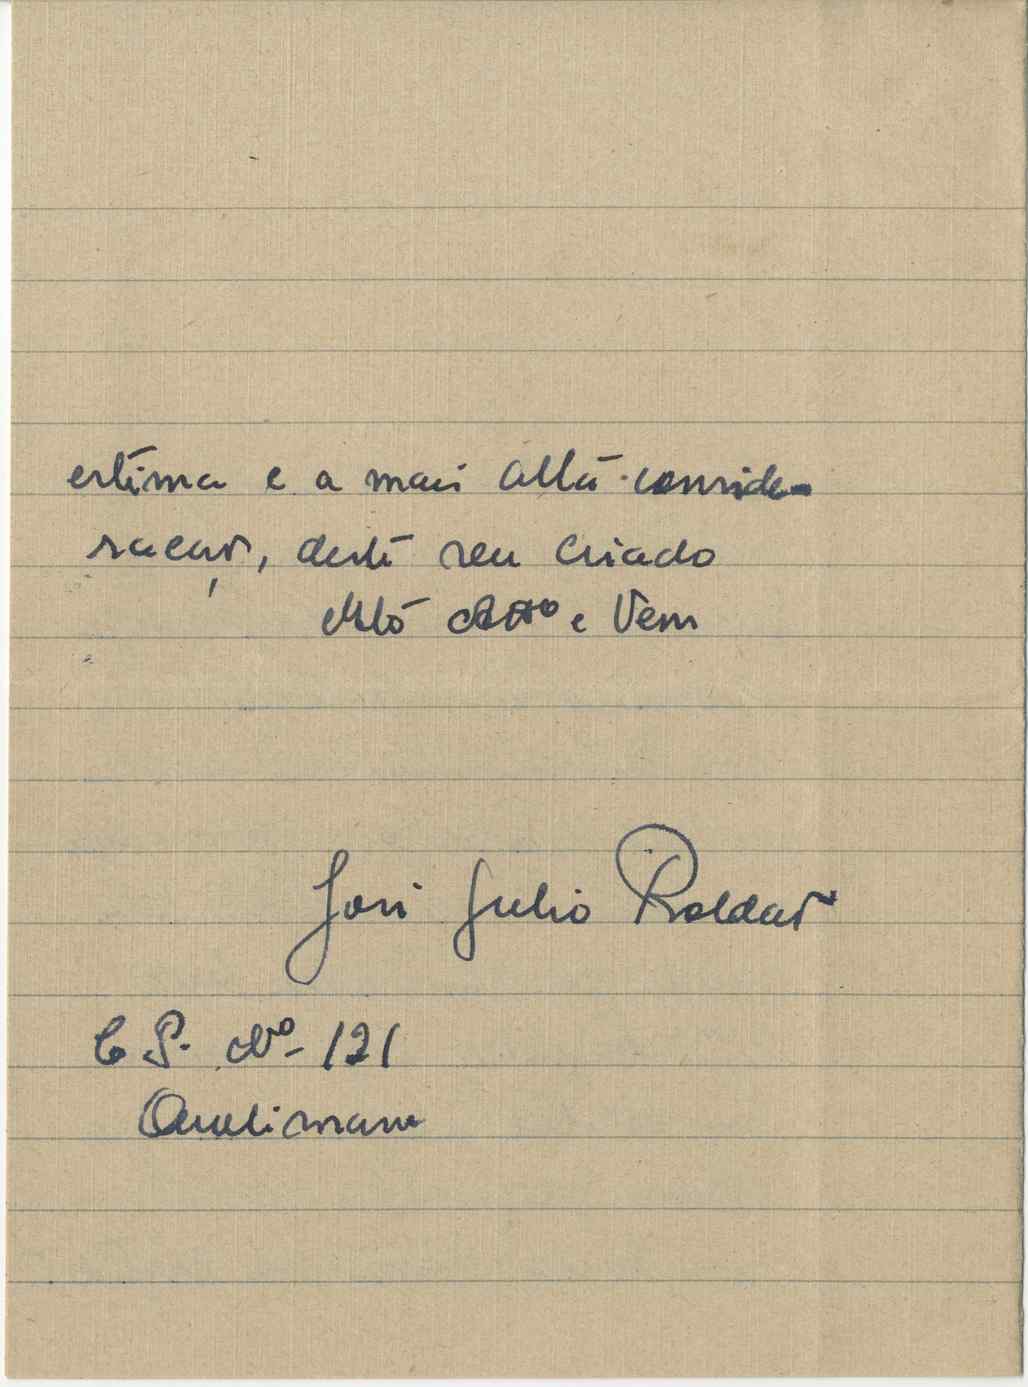 estima e a mais alta conside-
ração, deste seu criado
Mtº Attº e Vem
José Julio Roldão
C P. Nº- 121
Quelimane